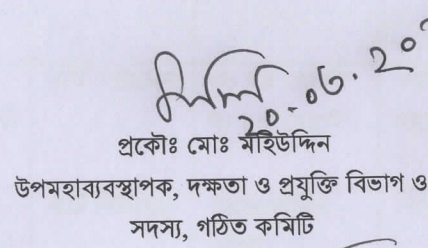 ২০.০৬.২০
প্রকৌঃ মোঃ মহিউদ্দিন
উপমহাব্যবস্থাপক, দক্ষতা ও প্রযুক্তি বিভাগ ও
সদস্য, গঠিত কমিটি